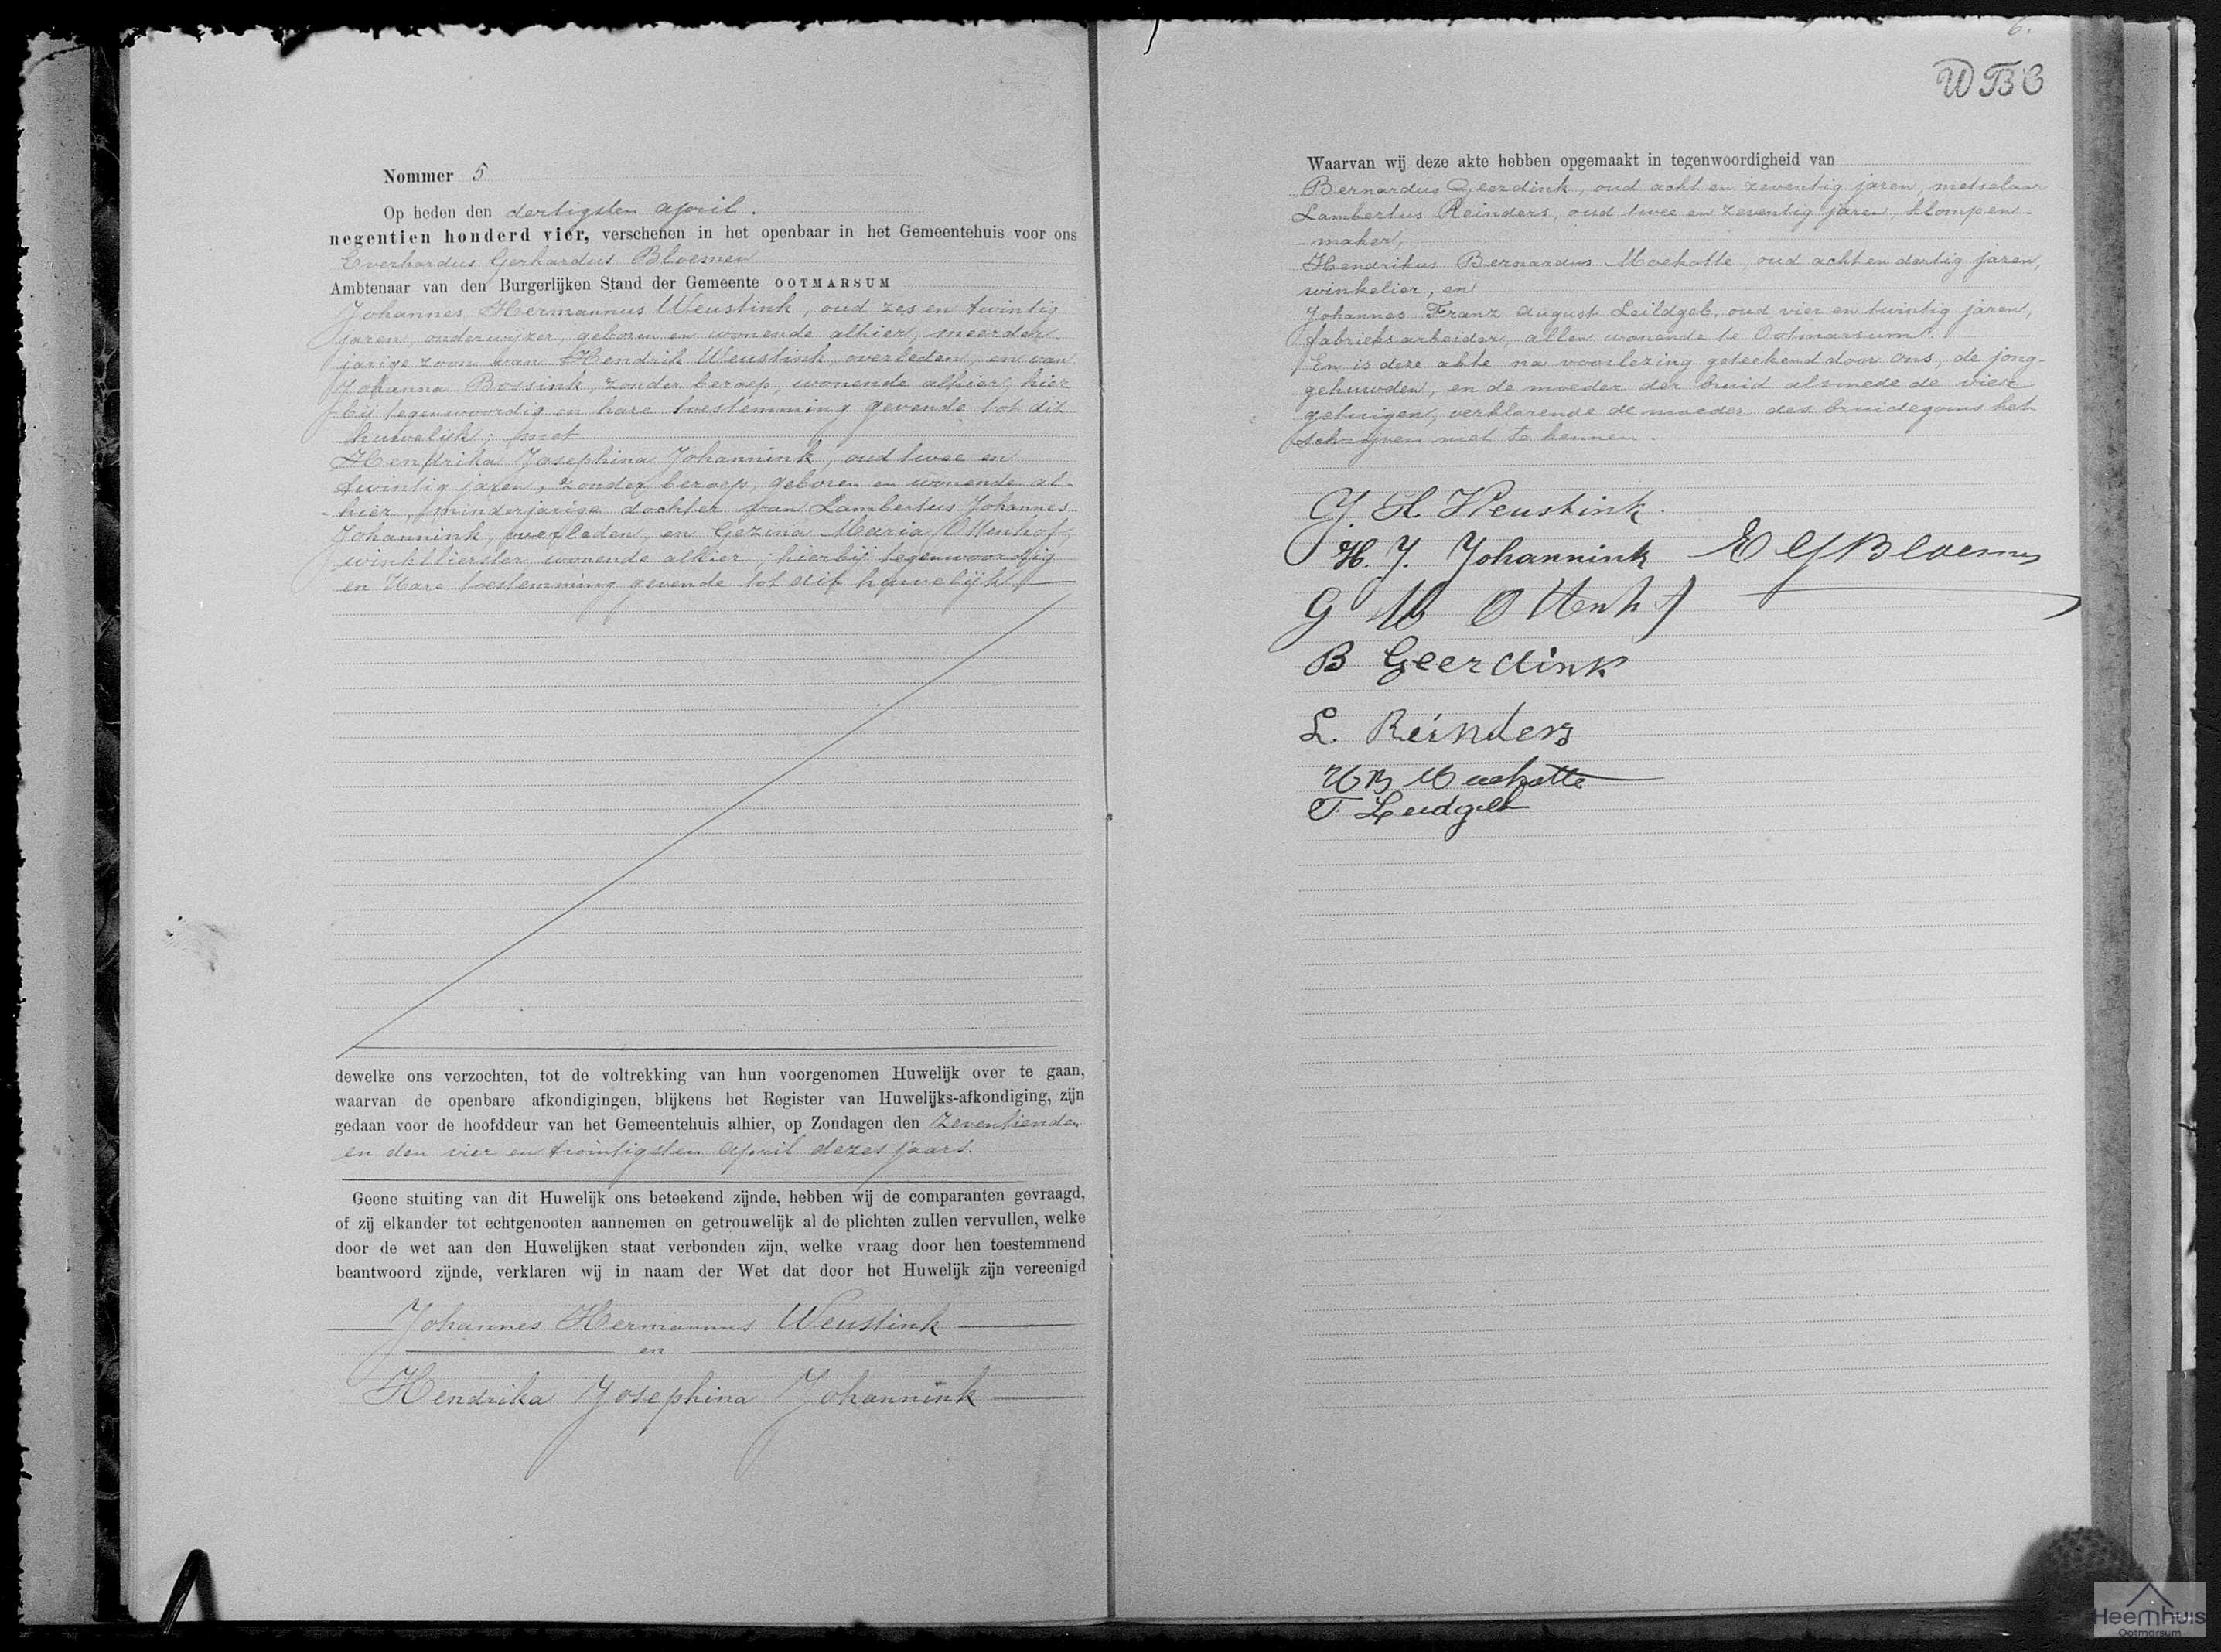 Nommer 5
Op heden den dertigsten April.
negentien honderd vier, verschenen in het openbaar in het Gemeentehuis voor ons
Everhardus Gerhardus Bloemen
Ambtenaar van den Burgerlijken Stand der Gemeente OOTMARSUM
Johannes Hermannus Weustink, oud zes en twintig
jaren, onderwijzer, geboren en wonende alhier, meerder-
jarige zoon van Hendrik Weustink, overleden, en van
Johanna Bossink, zonder beroep, wonende alhier, hier
bij tegenwoordig en hare toestemming gevende tot dit
huwelijk; met
Hendrika Josephina Johannink, oud twee en
twintig jaren, zonder beroep, geboren en wonende al-
hier, minderjarige dochter van Lambertus Johannes
Johannink, overleden, en Gezina Maria Ottenhof,
winkelierster wonende alhier; hierbij tegenwoordig
en Hare toestemming gevende tot dit huwelijk
dewelke ons verzochten, tot de voltrekking van hun voorgenomen Huwelijk over te gaan,
waarvan de openbare afkondigingen, blijkens het Register van Huwelijks-afkondiging, zijn
gedaan voor de hoofddeur van het Gemeentehuis alhier, op Zondagen den Zeventienden
en den vier en twintigsten April dezes jaars.
Geene stuiting van dit Huwelijk ons beteekend zijnde, hebben wij de comparanten gevraagd,
of zij elkander tot echtgenooten aannemen en getrouwelijk al de plichten zullen vervullen, welke
door de wet aan den Huwelijken staat verbonden zijn, welke vraag door hen toestemmend
beantwoord zijnde, verklaren wij in naam der Wet dat door het Huwelijk zijn vereenigd
Johannes Hermannus Weustink
en
Hendrika Josephina Johannink
6.
WBC
Waarvan wij deze akte hebben opgemaakt in tegenwoordigheid van
Bernardus Geerdink, oud acht en zeventig jaren, metselaar
Lambertus Reinders, oud twee en zeventig jaren, klompen-
maker,
Hendrikus Bernardus Moekotte, oud acht en dertig jaren,
winkelier, en
Johannes Franz August Leildgeb, oud vier en twintig jaren,
fabrieksarbeider, allen wonende te Ootmarsum.
En is deze akte na voorlezing geteekend door ons, de jong-
gehuwden, en de moeder der bruid alsmede de vier
getuigen, verklarende de moeder des bruidegoms het
schrijven niet te kennen.
J. H. Weustink.
H. J. Johannink E G Bloemen
G M Ottenhof
B Geerdink
L. Reinders
H B Moekotte
F Leidgeb
Heemhuis
Ootmarsum